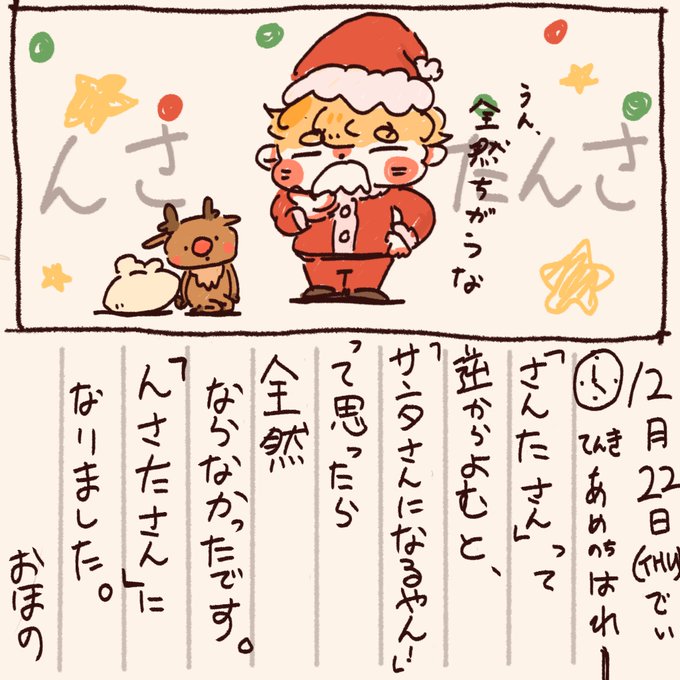 んさ たんさ
うん、
全然ちがうな
12月22日(THU)でい
てんき あめのちはれー
「さんたさん」って
逆からよむと、
「サンタさんになるやん!」
って思ったら
全然
ならなかったです。
「んさたさん」に
なりました。
おほの